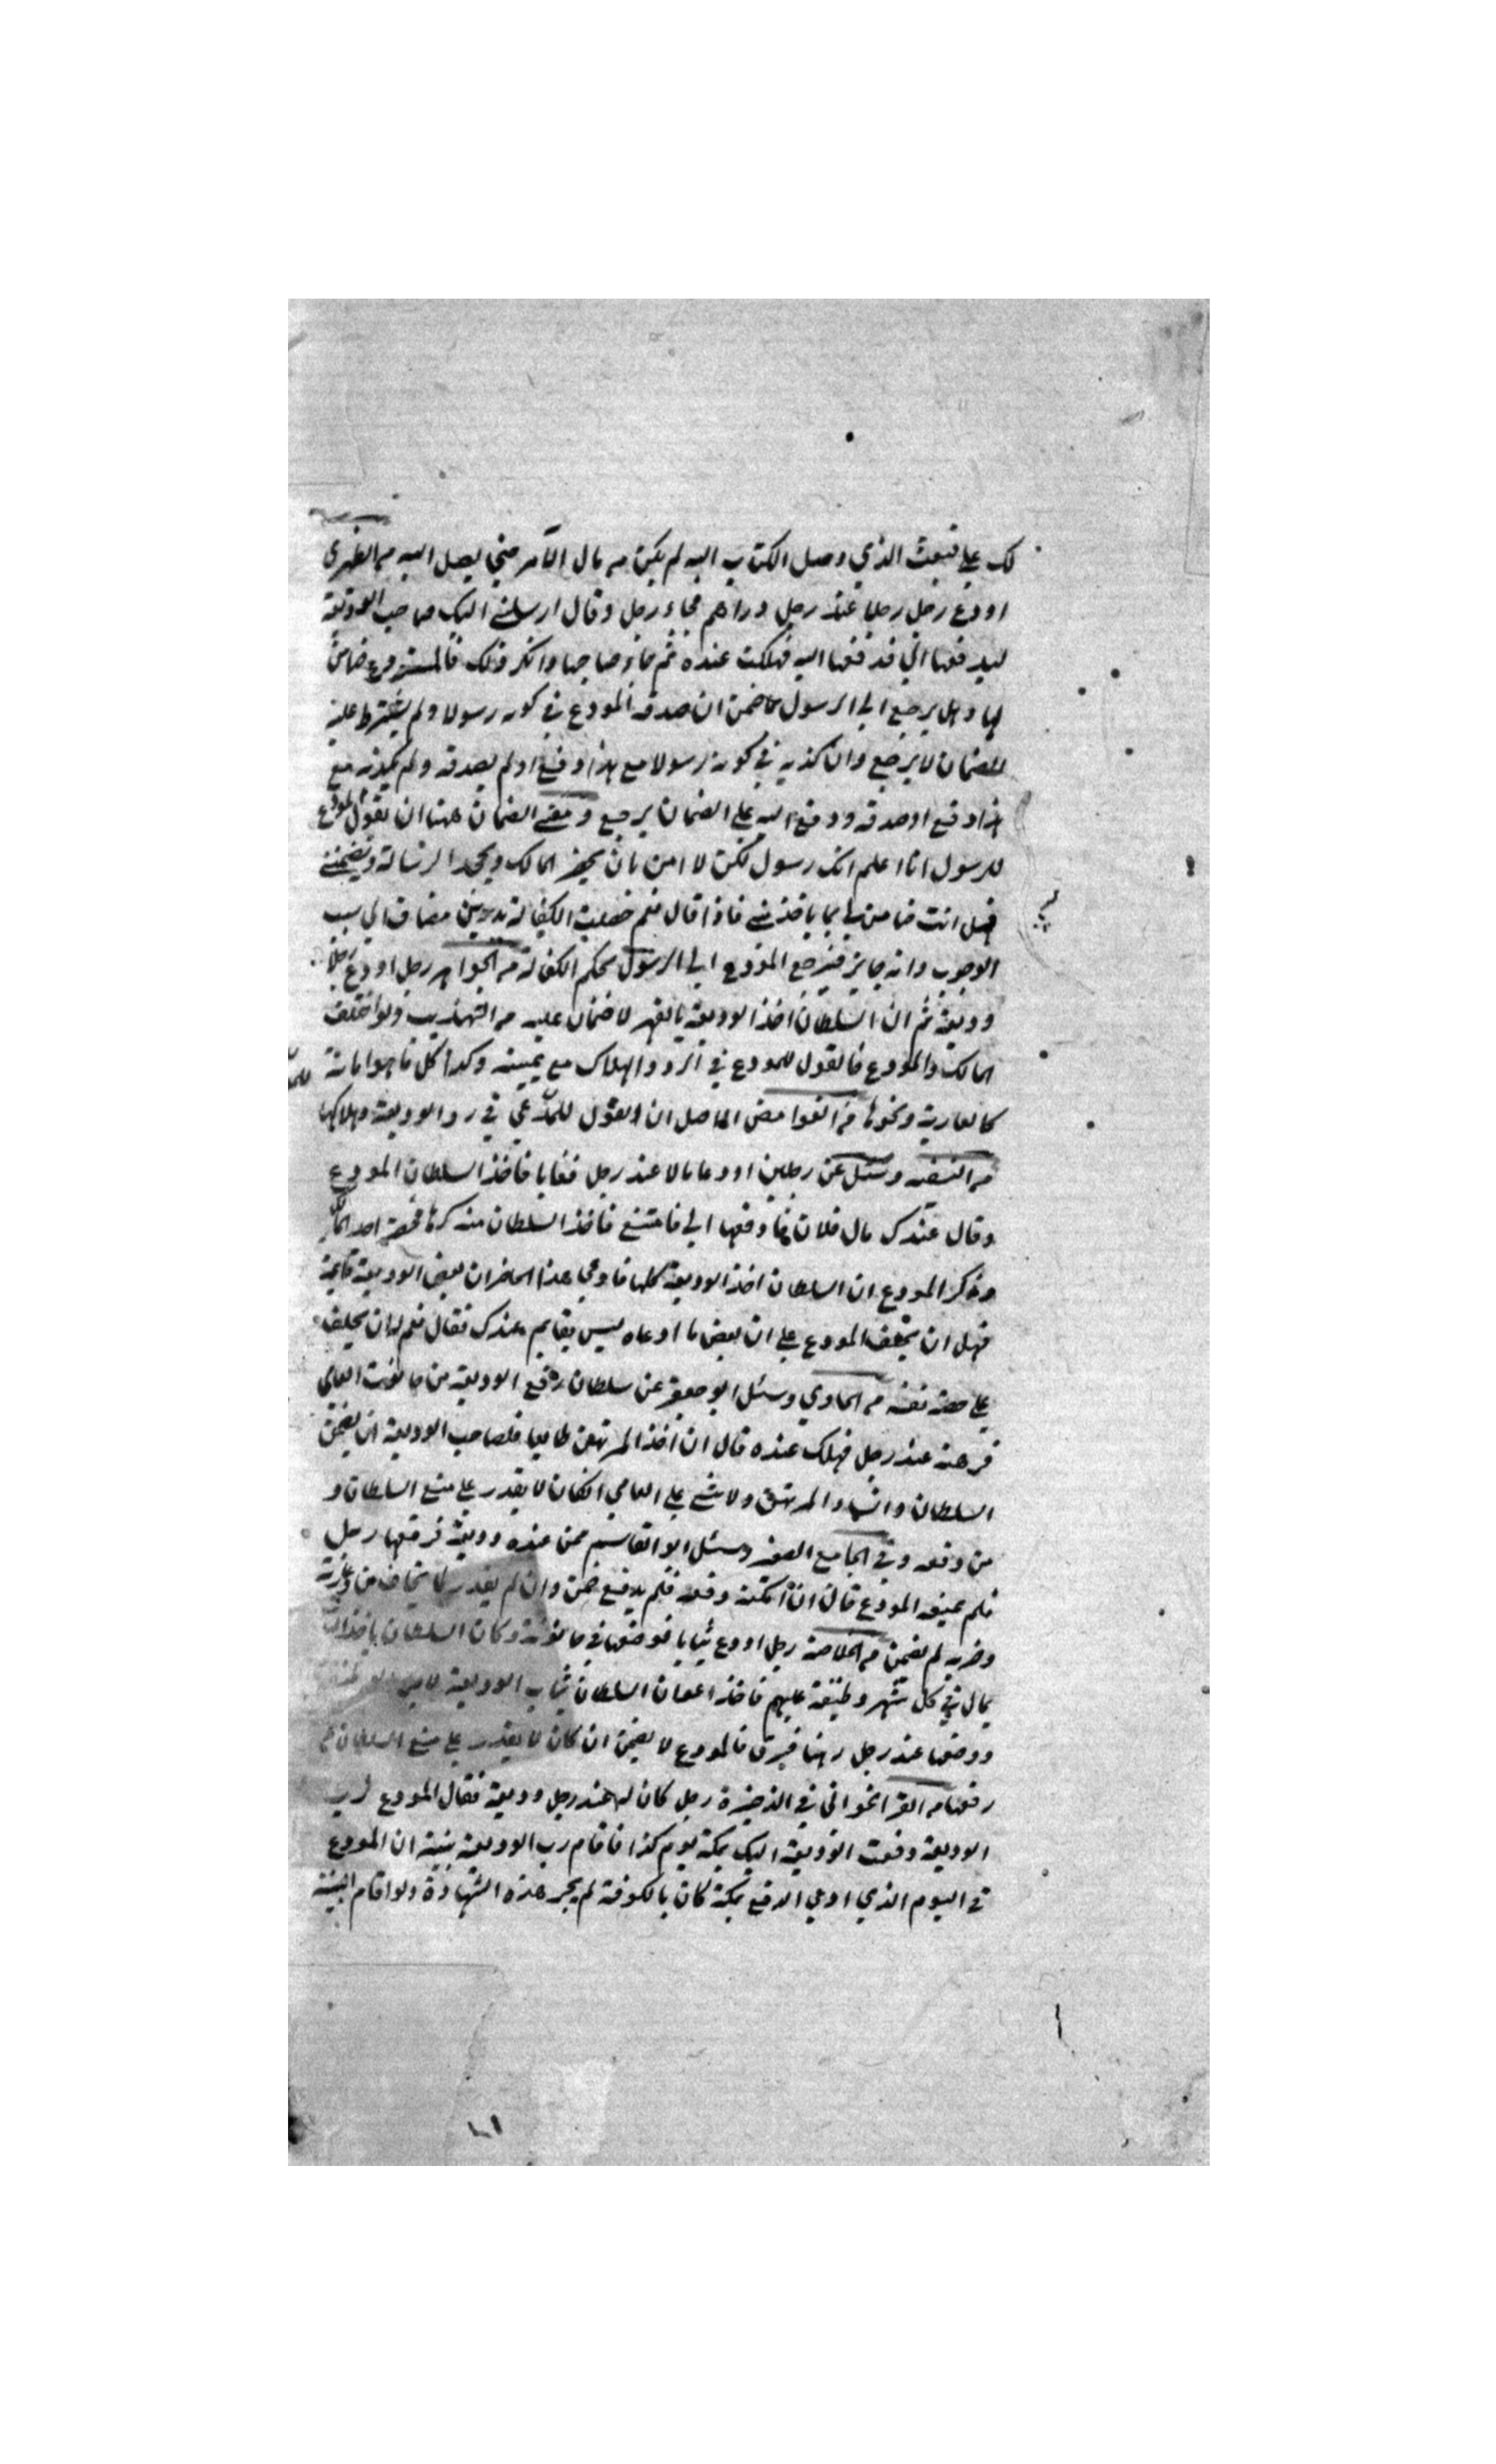 لك علي فبعث الذي وصل الكتاب اليه لم يكن من مال الآمر حتي يصل اليه من الظهيري
اودع رجل رجلا عند رجل دراهم فجاء رجل وقال ارسلني اليك صاحب الوديعة
ليدفعها الي فدفعها اليه فهلكت عنده ثم جاء صاحبها وانكر ذلك فالمستودع ضامن
لها وهل يرجع الي الرسول بما ضمن ان صدقه المودع في كونه رسولا ولم يشترط عليه
الضمان لا يرجع وان كذبه في كونه رسولا مع هذا دفع او لم يصدقه ولم يكذبه مع
هذا دفع او صدقه ودفع اليه علي الضمان يرجع ومعني الضمان ههنا ان يقول المودع
للرسول انا اعلم انك رسول لكن لا امن بان يحضر المالك ويجحد الرسالة ويضمنني
فهل انت ضامن لي بما ياخذ مني فاذا قال نعم حصلت الكفالة بدين مضاف الي سبب
الوجوب وانه جايز فيرجع المودع الي الرسول بحكم الكفالة من الجواهر رجل اودع رجلا
وديعة ثم ان السلطان اخذ الوديعة بالقهر لا ضمان عليه من التهذيب ولو اختلف
المالك والمودع فالقول للمودع في الرد والهلاك مع يمينه وكذا كل ما هو امانة
كالعارية ونحوها من الغوامض الحاصل ان القول للمدعي في رد الوديعة وهلاكها
من النتف وسئل عن رجلين اودعا مالا عند رجل فغابا فاخذ السلطان المودع
وقال عندك مال فلان فادفعها الي فامتنع فاخذ السلطان منه كرها فحضر احد
وذكر المودع ان السلطان اخذ الوديعة كلها فادعي هذا الحاضر ان بعض الوديعة قايمة
فهل ان يحلف المودع علي ان بعض ما ادعاه ليس بقايم عندك فقال نعم له ان يحلف
علي حصة نفسه من الحاوي وسئل ابو جعفر عن سلطان رفع الوديعة من حانوت العامي
فرهنه عند رجل فهلك عنده قال ان اخذ المرتهن طايعا فلصاحب الوديعة ان يضمن
السلطان وان شاء المرتهن ولا شئ علي العامي اذا كان لا يقدر علي منع السلطان و
من دفعه وفي الجامع الصغر وسئل ابو القاسم عمن عنده وديعة فرفعها رجل
فلم يمنعه المودع قال ان امكنه دفعه فلم يدفع ضمن وان لم يقدر لما يخاف من
وضربه لم يضمن من الخلاصة رجل اودع ثيابا فوضعها في حانوته وكان السلطان ياخذ
بمال في كل شهر وظيفة عليهم فاخذ اعوان السلطان ثياب الوديعة
ووضعها عند رجل رهنا فسرق فالمودع لا يضمن ان كان لا يقدر علي منع السلطان من
رفعها من القراخواني في الذخيرة رجل كان له عند رجل وديعة فقال المودع لرب
الوديعة دفعت الوديعة اليك بمكة يوم كذا فاقام رب الوديعة بينة ان المودع
في اليوم الذي ادعي الدفع بمكة كان بالكوفة لم يجز هذه الشهادة ولو اقام البينة